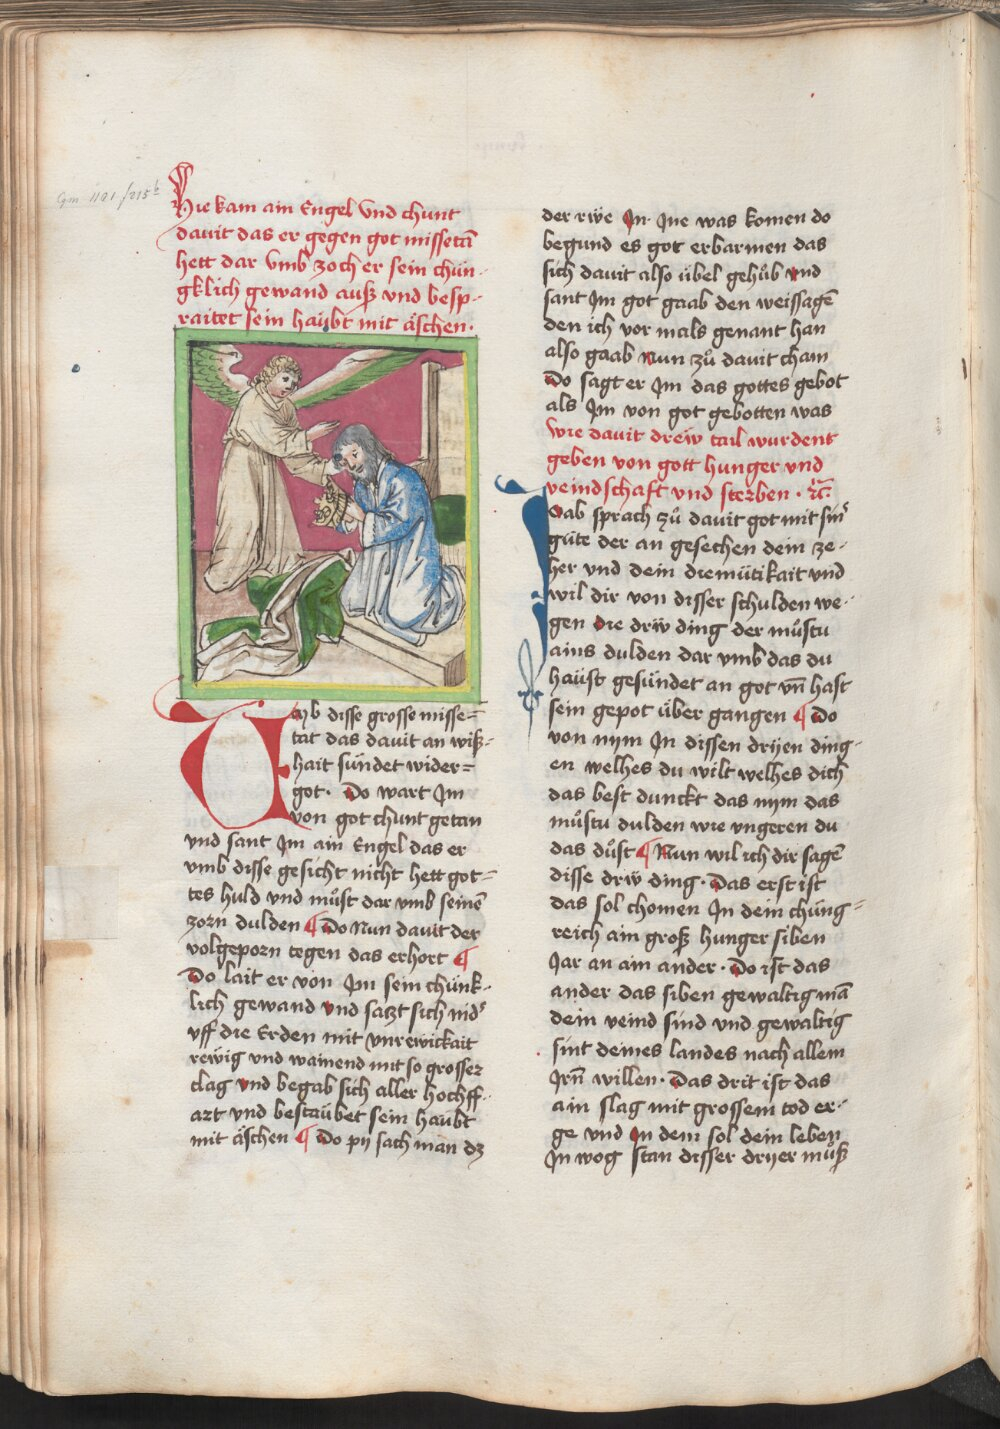 Cgm 1101 /215b
Hie kam ain Engel Vnd chunt
dauit das er gegen got missetā
hett dar Vmb zoch er sein chün-
gklich gewand auß vnd besp-
raitet sein haübt mit äschen.
Umb disse grosse misse-
tat das dauit an wiß-
hait sündet wider-
got. Do wart Jm
von got chunt getan
vnd sant Jm ain Engel das er
vmb disse gesicht nicht hett got-
tes huld vnd můst dar vmb seinē
zorn dulden ¶ Do Nun dauit der
volgeporn tegen das erhort ¶
Do lait er von Jm sein chünk-
lich gewand vnd satzt sich nid'
vff die Erden mit vnrewickait
rewig vnd wainend mit so grosser
clag vnd begab sich aller hochff-
art vnd bestaübet sein haübt
mit äschen ¶ Do pij sach man dz
der rwe Jn Jne was komen do
begund es got erbarmen das
sich dauit also übel gehůb vnd
sant Jm got gaab den weissagē
den ich vor mals genant han
also gaab Nun zů dauit cham
Do sagt er Jm das gottes gebot
als Jm von got gebotten was
Wie dauit drew tail wurdent
geben von gott hunger vnd
veindschaft vnd sterben. rc.
Gab sprach zů dauit got mit sin'
güte der an gesechen dein ze-
her vnd dein diemütikait vnd
wil dir von disser schulden we-
gen die drw ding der můstu
ains dulden dar vmb das du
haüst gesündet an got vn̄ hast
sein gepot über gangen ¶ Do
von nym Jn dissen drijen ding-
en welhes du wilt welhes dich
das best dunckt das nym das
můstu dulden wie vngeren du
das důst ¶ Nun wil ich dir sagē
disse drw ding. Das erst ist
das sol chomen Jn dein chüng-
reich ain groß hunger siben
Jar an ain ander. Do ist das
ander das siben gewaltig mā
dein veind sind vnd gewaltig
sint deines landes nach allem
Jrn̄ willen. Das drit ist das
ain slag mit grossem tod er-
ge vnd Jn dem sol dein leben
Jn wog stan disser drijer můß